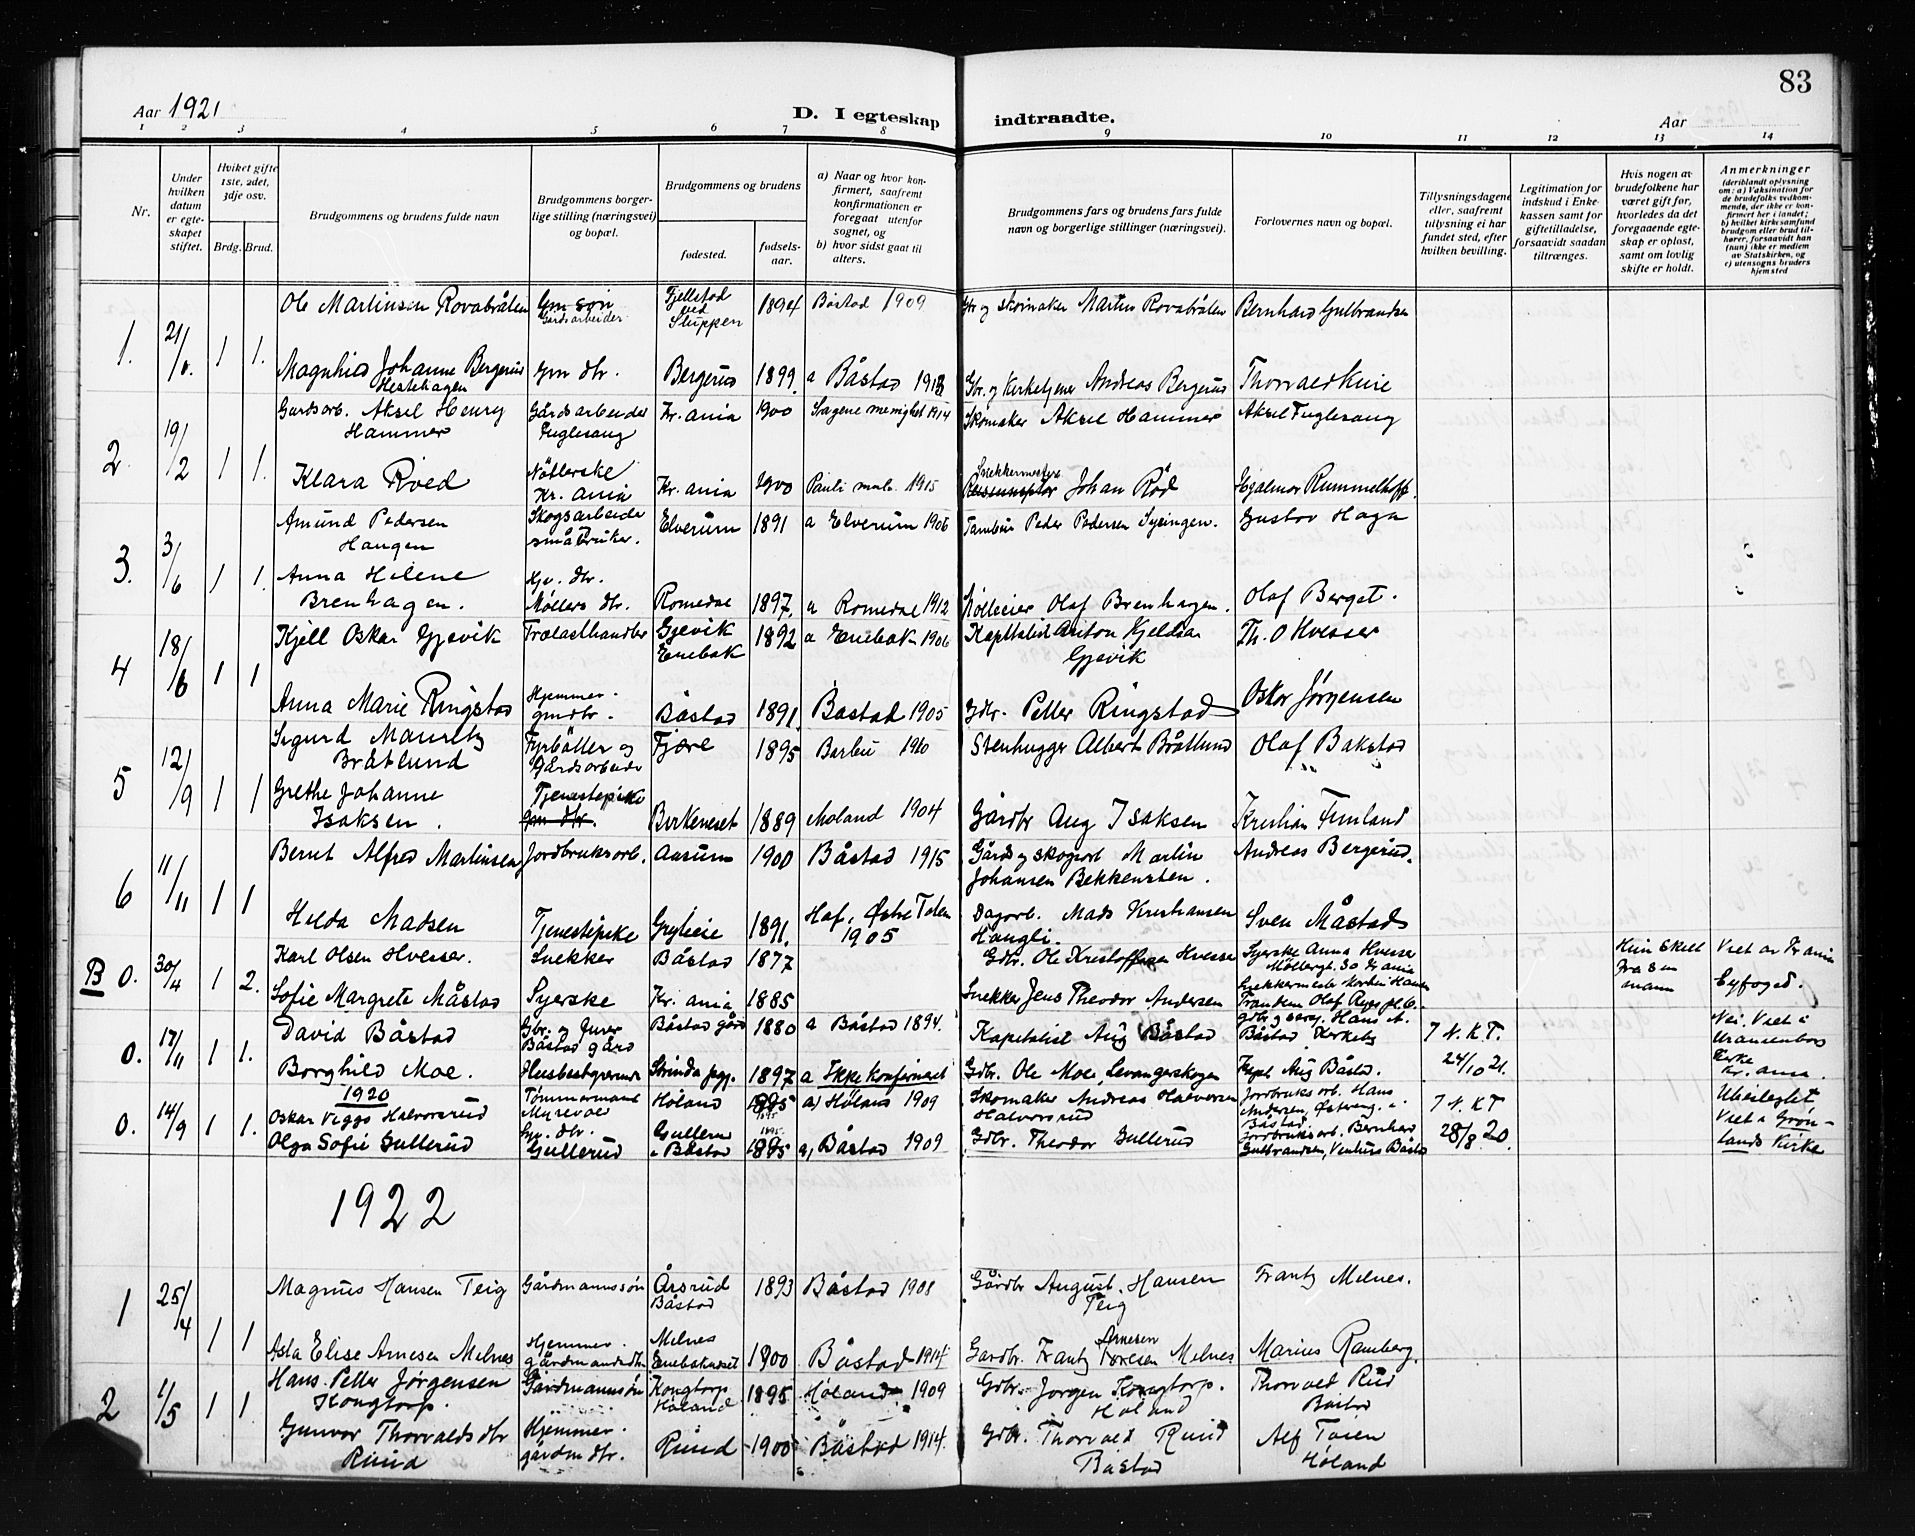 83
Aar 1921
D. I egteskap indtraadte.
Aar
1 2 3 4 5 6 7 8 9 10 11 12 13 14
Nr.
Under hvilken datum er egteskapet stiftet.
Hviket gifte 1ste, 2det, 3dje osv.
Brdg. Brud.
Brudgommens og brudens fulde navn
Brudgommens borgerlige stilling (næringsvei) og bopæl.
Brudgommens og brudens
fødested.
fødselsaar.
a) Naar og hvor konfirmert, saafremt konfirmationen er foregaat utenfor sognet, og
b) hvor sidst gaat til alters.
Brudgommens fars og brudens fars fulde navn og borgerlige stillinger (næringsvei).
Forlovernes navn og bopæl.
Tillysningsdagene eller, saafremt tillysning ei har fundet sted, efter hvilken bevilling.
Legitimation for indskud i Enkekassen samt for giftetilladelse, forsaavidt saadan tiltrænges.
Hvis nogen av brudefolkene har været gift før, hvorledes da det foregaaende egteskap er opløst, samt om lovlig skifte er holdt.
Anmerkninger (deriblandt oplysning om: a) Vaksination for de brudefolks vedkommende, der ikke er konfirmert her i landet; b) hvilket kirkesamfund brudgom eller brud tilhører, forsaavidt han (hun) ikke er medlem av Statskirken, og c) utensogns bruders hjemsted
Ole Martinsen Rovabråten Gm søn Gårdsarbeider Fjellstad ved Sluppen 1894 Båstad 1909 Gbr og skomaker Martin Rovabråten Bernhard Gulbrandsen
1. 21/ 1 1.
Magnhild Johanne Bergerud Hestehagen Gm dtr. Bergerud 1899. a Båstad 1913 Gbr. og Kirketjener Andreas Bergerud Thorvald
Gardsarb. Aksel Henry Hammer Gårdsarbeider Fuglesang Kr.ania 1900 Sagene menighet 1914 Skomaker Aksel Hammer Aksel Fuglesang
2 19/2 1 1.
Klara Röed Kr. ania Kr. ania 1900 Pauli men. 1915 Snekkermester Johan Röd Hjalmar Rummelhoff.
Amund Pedersen Haugen Skogsarbeider småbruker. Elverum 1891 a Elverum 1906 Tambur Peder Pedersen Gustav Haga
3. 3/6 1 1.
Anna Helene Brenhagen. Hj. dtr. Møllers dtr. Romedal 1897. a Romedal 1912 Mølleeier Olaf Brenhagen. Olaf Berget.
Kjell Oskar Gjevik Trælasthandler Gjevik Enebak 1892 a Enebak 1906 Kapitalist Anton Kjeldsen Gjevik Th. O Hvesser
4 18/6 1 1
Anna Marie Ringstad Hjemmev. gmdtr. Båstad 1891. Båstad 1905 Gdbr. Petter Ringstad Oskar Jørgensen
Sigurd Mauritz Bråtlund Fyrbøter og Gårdsarbeider Fjære 1895 Barbu 1910 Stenhugger Albert Bråtlund Olaf Bakstad
5 12/9 1 1
Grethe Johanne Isaksen. Tjenestepike Gm dtr. Birkeneset 1889 Moland 1904 Gårdbr Aug Isaksen Kristian Finland
Bernt Alfred Martinsen Jordbruksarb. Aasum 1900 Båstad 1915 Gårds og skogarb Martin Johansen Bekkensten. Andreas Bergerud.
6 11/11 1 1
Hilda Madsen Tjenestepike 1891. Hof, Østre Toten 1905 Dagarb. Mads Kristiansen Haugli. Sven Måstad
B 0. 30/4 1 2.
Karl Olsen Hvesser. Snekker Båstad 1877 Gdbr. Ole Kristoffersen Hvesser Syerske Anna Hvesser Møllergt. 30 Kr ania Hun skilt fra sen mann Viet av Kr ania Byfoged.
Sofie Margrete Måstad Syerske Kr. ania 1885 Snekker Jens Theodor Andersen
0. 17/11 1 1.
David Båstad Gbr. og Jurer Båstad gård Båstad gård 1880 a Båstad 1894. Kapitalist Aug Båstad Gdbr og Hans A. Båstad Kirkeby 7 N. K T. 24/10 21. Nei. Viet i Uranienborg Kirke Kr. ania.
Borghild Moe. Strinda 1897 a Ikke konfirmert Gdbr. Ole Moe, Levangerskogen Kapt Aug Båstad.
1920
0. 14/9 1 1.
Oskar Viggo Halvorsrud Tømmermand Myrevold Høland 1895 a) Høland 1909 Skomaker Andreas Halvorsen Halvorsrud Jordbruksarb. Hans Andersen, i Båstad 7 N. K T 28/8 20. Ubeilegtet Viet i Grønlands Kirke
Olga Sofie Gullerud Gm. dtr. Gullerud Gullerud i Båstad 1895 a) Båstad 1909 Gdbr. Theodor Gullerud Jordbruksarb. Bernhard Gulbrandsen, Båstad
1922
Magnus Hansen Teig Gårdmannssøn Årsrud Båstad 1893 Båstad 1908 Gårdbr August Hansen Teig Frantz Melnes.
1 25/4 1 1
Asta Elise Arnesen Melnes Hjemmev. gårdmandsdtr. Melnes 1900 Båstad 1914 Gardbr. Frantz Arnesen Melnes Marius Ramberg.
Hans Petter Jørgensen Kongtorp. Gårdmannssøn Kongtorp Høland 1895 Høland 1909 Gdbr. Jørgen Kongtorp. Høland Thorvald Rud Båstad
2 1/5 1 1
Gunvor Thorvaldsdtr Ruud Hjemmev. gårdm dtr. Ruud 1900 Båstad 1914. Gdbr. Thorvald Ruud Båstad Alf Toien Høland